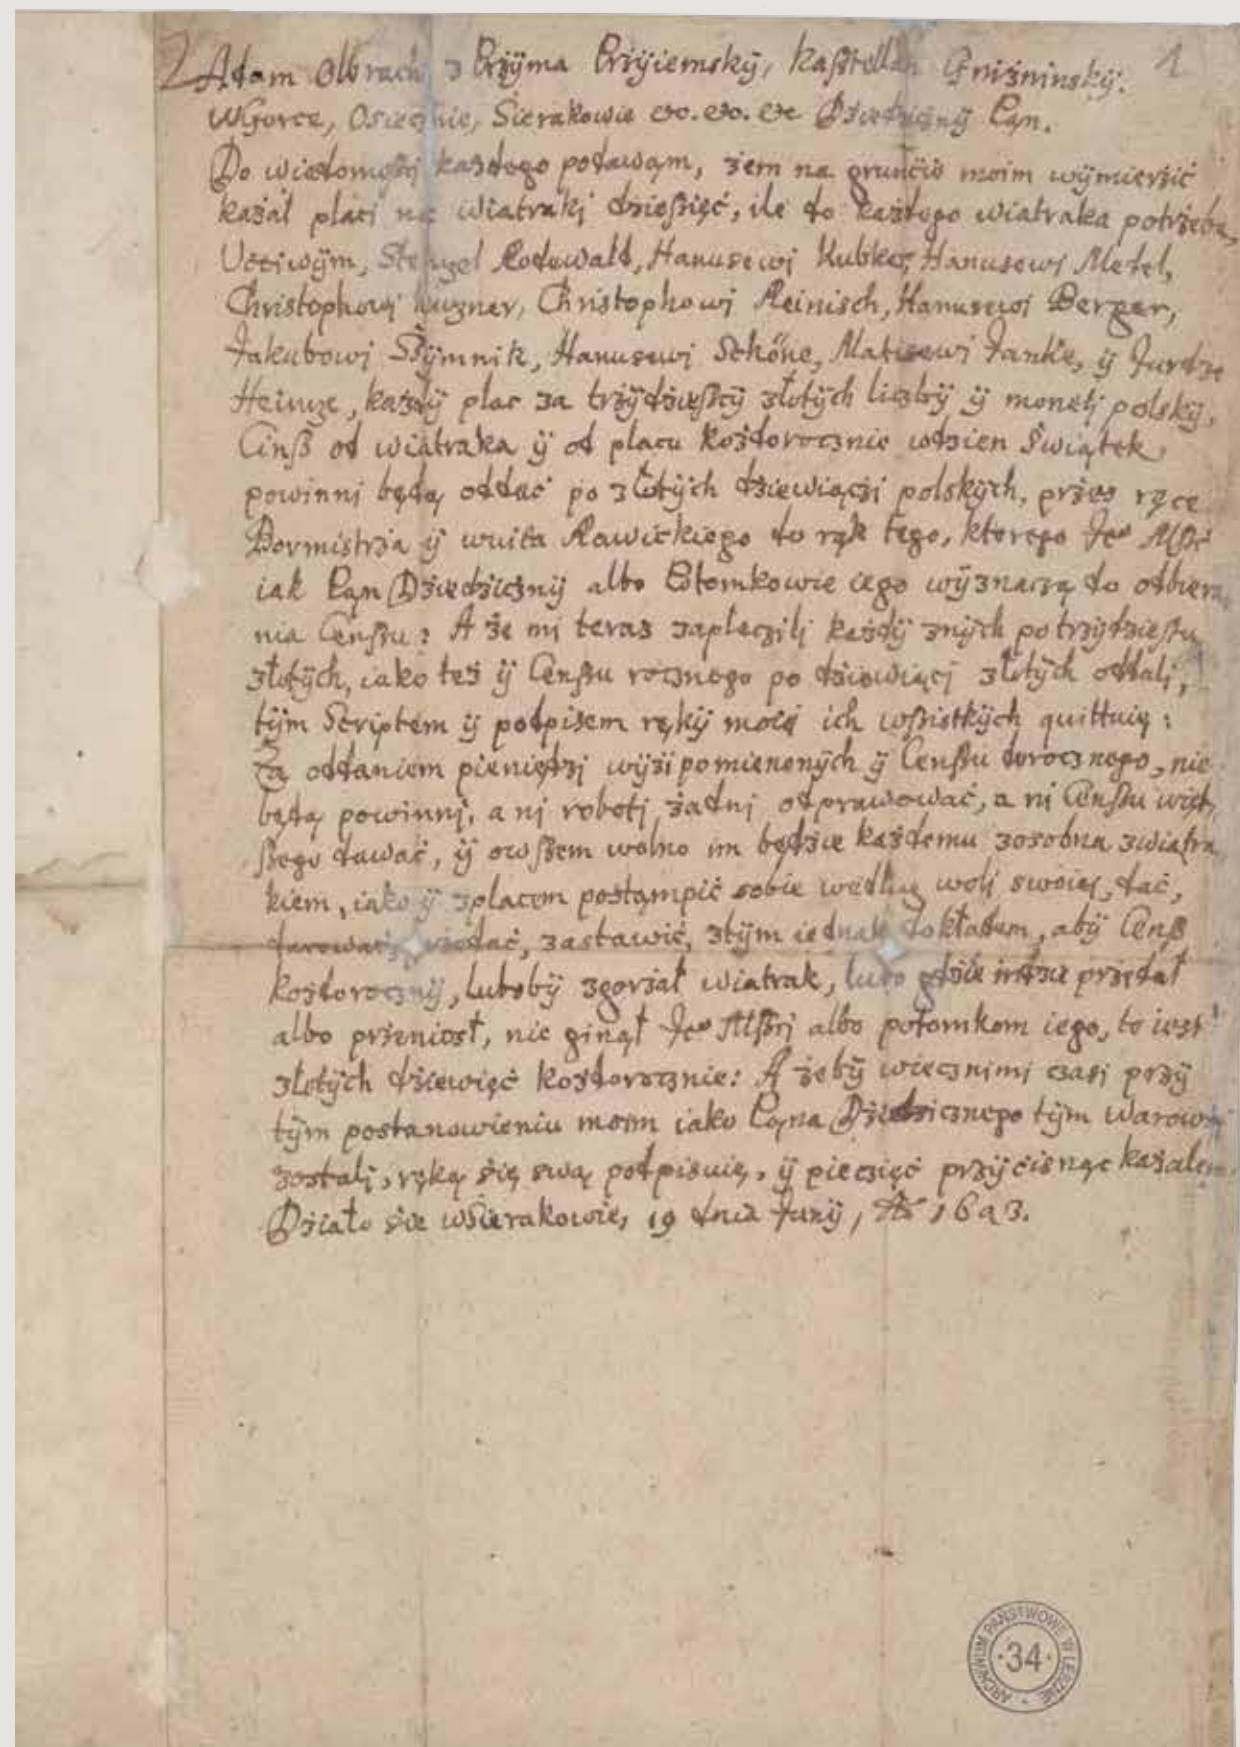 1
Adam Olbracht z Przÿma Przÿiemskÿ, Kasztellan Gnizninskÿ.
WGorce, Osiecznie, Sierakowie etc. etc. etc Dziedzicznÿ Pąn.
Do wiadomosci kazdego podawąm, zem na grunciè moim wÿmierzić
kazał placi na wiatrakj dzieszięć, ile do kazdego wiatraka potrzeba,
Ucciwÿm, Stenzel Rodewald, Hanusewj Kubke, Hanusewj Metel,
Christophowj Kuzner, Christophowj Reinisch, Hanusewi Berger,
Jakubowj Szÿmnik, Hanusewj Schöne, Matisewj Janke, ÿ Jurdze
Heinze, kazdÿ plac za trzÿdziesztÿ złotÿch liczbÿ ÿ monetj polskÿ,
Cinß od wiatraka ÿ od placu kozdorocznie wdzien Swiątek
powinnj będą oddać po złotÿch dziewiączi polskÿch, przes ręce
Bormistrza ÿ wuita Rawickiego do rąk tego, ktorego Jeo Mßć
iak Pąn Dziedzicznÿ albo Potomkowie iego wÿznaczą do odbiera
nia Censzu: A ze mi teras zapłaczilj kazdÿ znÿch po trzÿdziestu
złotÿch, iako tes ÿ Censzu rocznego po dziewiącj złotÿch oddalj,
tÿm Scriptem ÿ podpisem rękÿ moiè ich wszistkÿch quittuię:
Za oddaniem pieniędzj wÿzi pomienonÿch ÿ Censzu dorocznego, nie
będą powinnj, a nj robotj zadnj odprawować, a ni Censzu więk
szego dawać, ÿ owszem wolno im będzie kazdemu zosobna zwiatra
kiem, iako ÿ zplacem postąmpić sobie wedlug wolj swoiej, dać,
darować, przedać, zastawić, ztÿm iednak dokładem, abÿ Cenß
kozdorocznÿ, lubobÿ zgorzał wiatrak, lubo gdzie indzie przedał
albo przeniosł, nie ginął Jeo Mßcj albo potomkom iego, to iest
złotÿch dziewięć kozdorocznie: A zebÿ wiecznimi czasi przÿ
tÿm postanowieniu moim iako Pąna Dziedzicznego tÿm Warownj
zostalj, ręką się swą podpisuię, ÿ pieczięć przÿcisnąc kazałem.
Działo sie wSierakowie, 19 dnia Junÿ, Ao 1693.
ARCHIWUM PAŃSTWOWE W LESZNIE
34